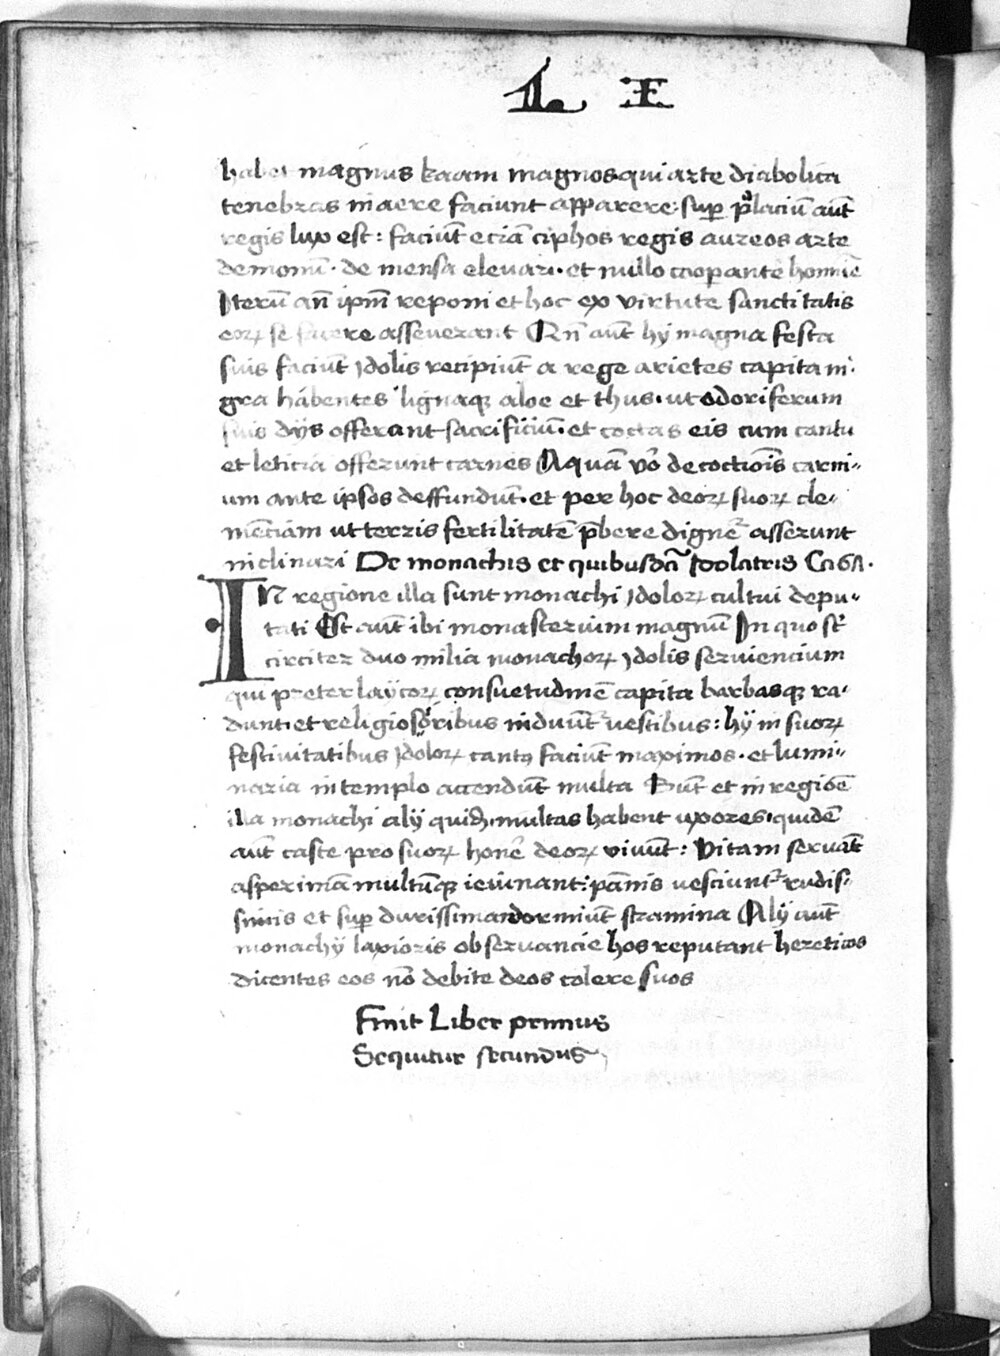 L I
habet magnus kaam magnos qui arte diabolica
tenebras in aere faciunt apparere· sup̱ p̱laciū aūt
regis lux est: faciūt eciā ciphos regis aureos arte
demonū· de mensa elevari· et nullo cooperante homīe
Iterū añ ip̄m reponi et hoc ex virtute sanctitatis
eoꝝ se facere asseverant Qn̄ aūt hij magna festa
suis faciūt ydolis recipiūt a rege arietes capita ni·
gra habentes lignaqꝫ aloe et thus· ut odoriferum
suis dijs offerant sacrificiū· et coctas eis cum cantu
et leticia offerunt carnes Aquā vō decoctiōis carni〃
um ante ipsos deffundūt· et per hoc deoꝝ suoꝝ cle·
mēciam ut terris fertilitatē p̄bere dignēt asserunt
inclinari De monachis et quibusdā Idolatris Ca 61·
IN regione illa sunt monachi ydoloꝝ cultui depu〃
tati Est aūt ibi monasterium magnū In quo sūt
circiter duo milia monachoꝝ ydolis serviencium
qui preter laycoꝝ consuetudinē capita barbasqꝫ ra·
dunt et religiosoribus induūt vestibus: hij in suoꝝ
festivitatibus ydoloꝝ cantꝰ faciūt maximos· et lumi〃
naria in templo accendūt multa Sunt et in regiōe
illa monachi alij quidam multas habent uxores· quidē
aūt caste pro suoꝝ honē deoꝝ vivūt: Vitam servāt
asperimā multūqꝫ ieiunant: pānis vesciunt rudis·
simis et sup̱ durissima dormiūt stramina Alij aūt
monachij laxioris observancie hos reputant hereticos
dicentes eos nō debite deos colere suos
Finit Liber primus
Sequitur secundus